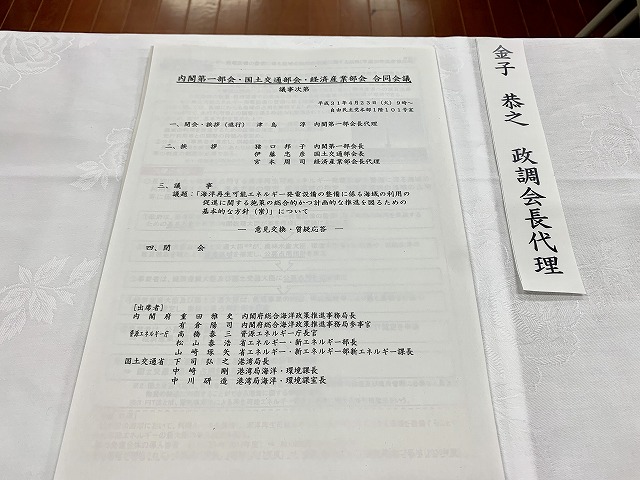 内閣第一部会・国土交通部会・経済産業部会 合同会議
議事次第
平成31年4月23日(火) 9時～
自由民主党本部1階101号室
一、開会・挨拶(進行) 津島 淳 内閣第一部会長代理
二、挨 拶 猪口邦子 内閣第一部会長
伊藤忠彦 国土交通部会長
宮本周司 経済産業部会長代理
三、議 事
議題:「海洋再生可能エネルギー発電設備の整備に係る海域の利用の
促進に関する施策の総合的かつ計画的な推進を図るための
基本的な方針(案)」について
― 意見交換・質疑応答 ―
四、閉 会
[出席者]
内閣府 重田雅史 内閣府総合海洋政策推進事務局長
有倉陽司 内閣府総合海洋政策推進事務局参事官
資源エネルギー庁 高橋泰三 資源エネルギー庁長官
松山泰浩 省エネルギー・新エネルギー部長
山崎琢矢 省エネルギー・新エネルギー部新エネルギー課長
国土交通省 下司弘之 港湾局長
中崎 剛 港湾局海洋・環境課長
中川研造 港湾局海洋・環境課室長
金子 恭之 政調会長代理